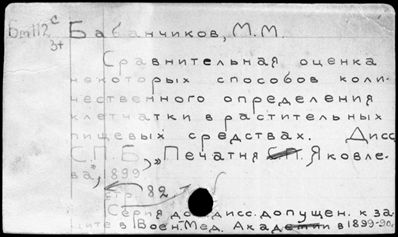 Бm112 c
3+
Бабанчиков, М.М.
Сравнительная оценка
некоторых способов коли-
чественного определения
клетчатки в растительных
пищевых средствах. Дисс.
С.П.Б., "Печатня С.П. Яковле-
ва", 1899
стр. 82.
Серия докт. дисс. допущен. к за-
щите в Воен.-Мед. Академии в 1899-900